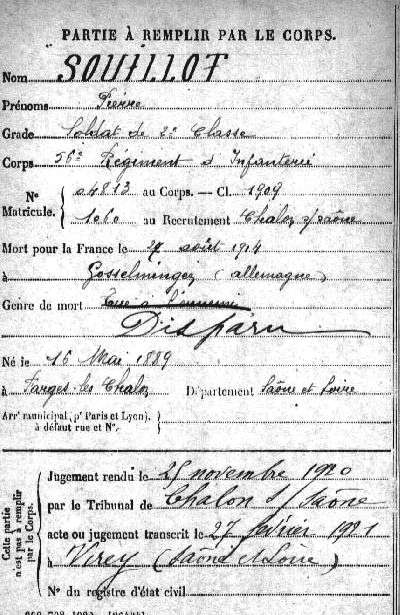 PARTIE À REMPLIR PAR LE CORPS.
Nom SOUILLOT
Prénoms Pierre
Grade Soldat de 2e Classe
Corps 56e Régiment d'Infanterie
Nº Matricule. 04813 au Corps. — Cl. 1909
1060 au Recrutement Chalon s/Saône
Mort pour la France le août 1914
à Gosselmingen (allemagne)
Genre de mort Tué à l'ennemi
Disparu
Né le 16 Mai 1889
à Farges-les-Chalon Département Saône et Loire
Arrt municipal (pr Paris et Lyon),
à défaut rue et Nº.
Cette partie n'est pas à remplir par le Corps.
Jugement rendu le 25 novembre 1920
par le Tribunal de Chalon S/Saône
acte ou jugement transcrit le 27 février 1921
à Virey (Saône et Loire)
Nº du registre d'état civil